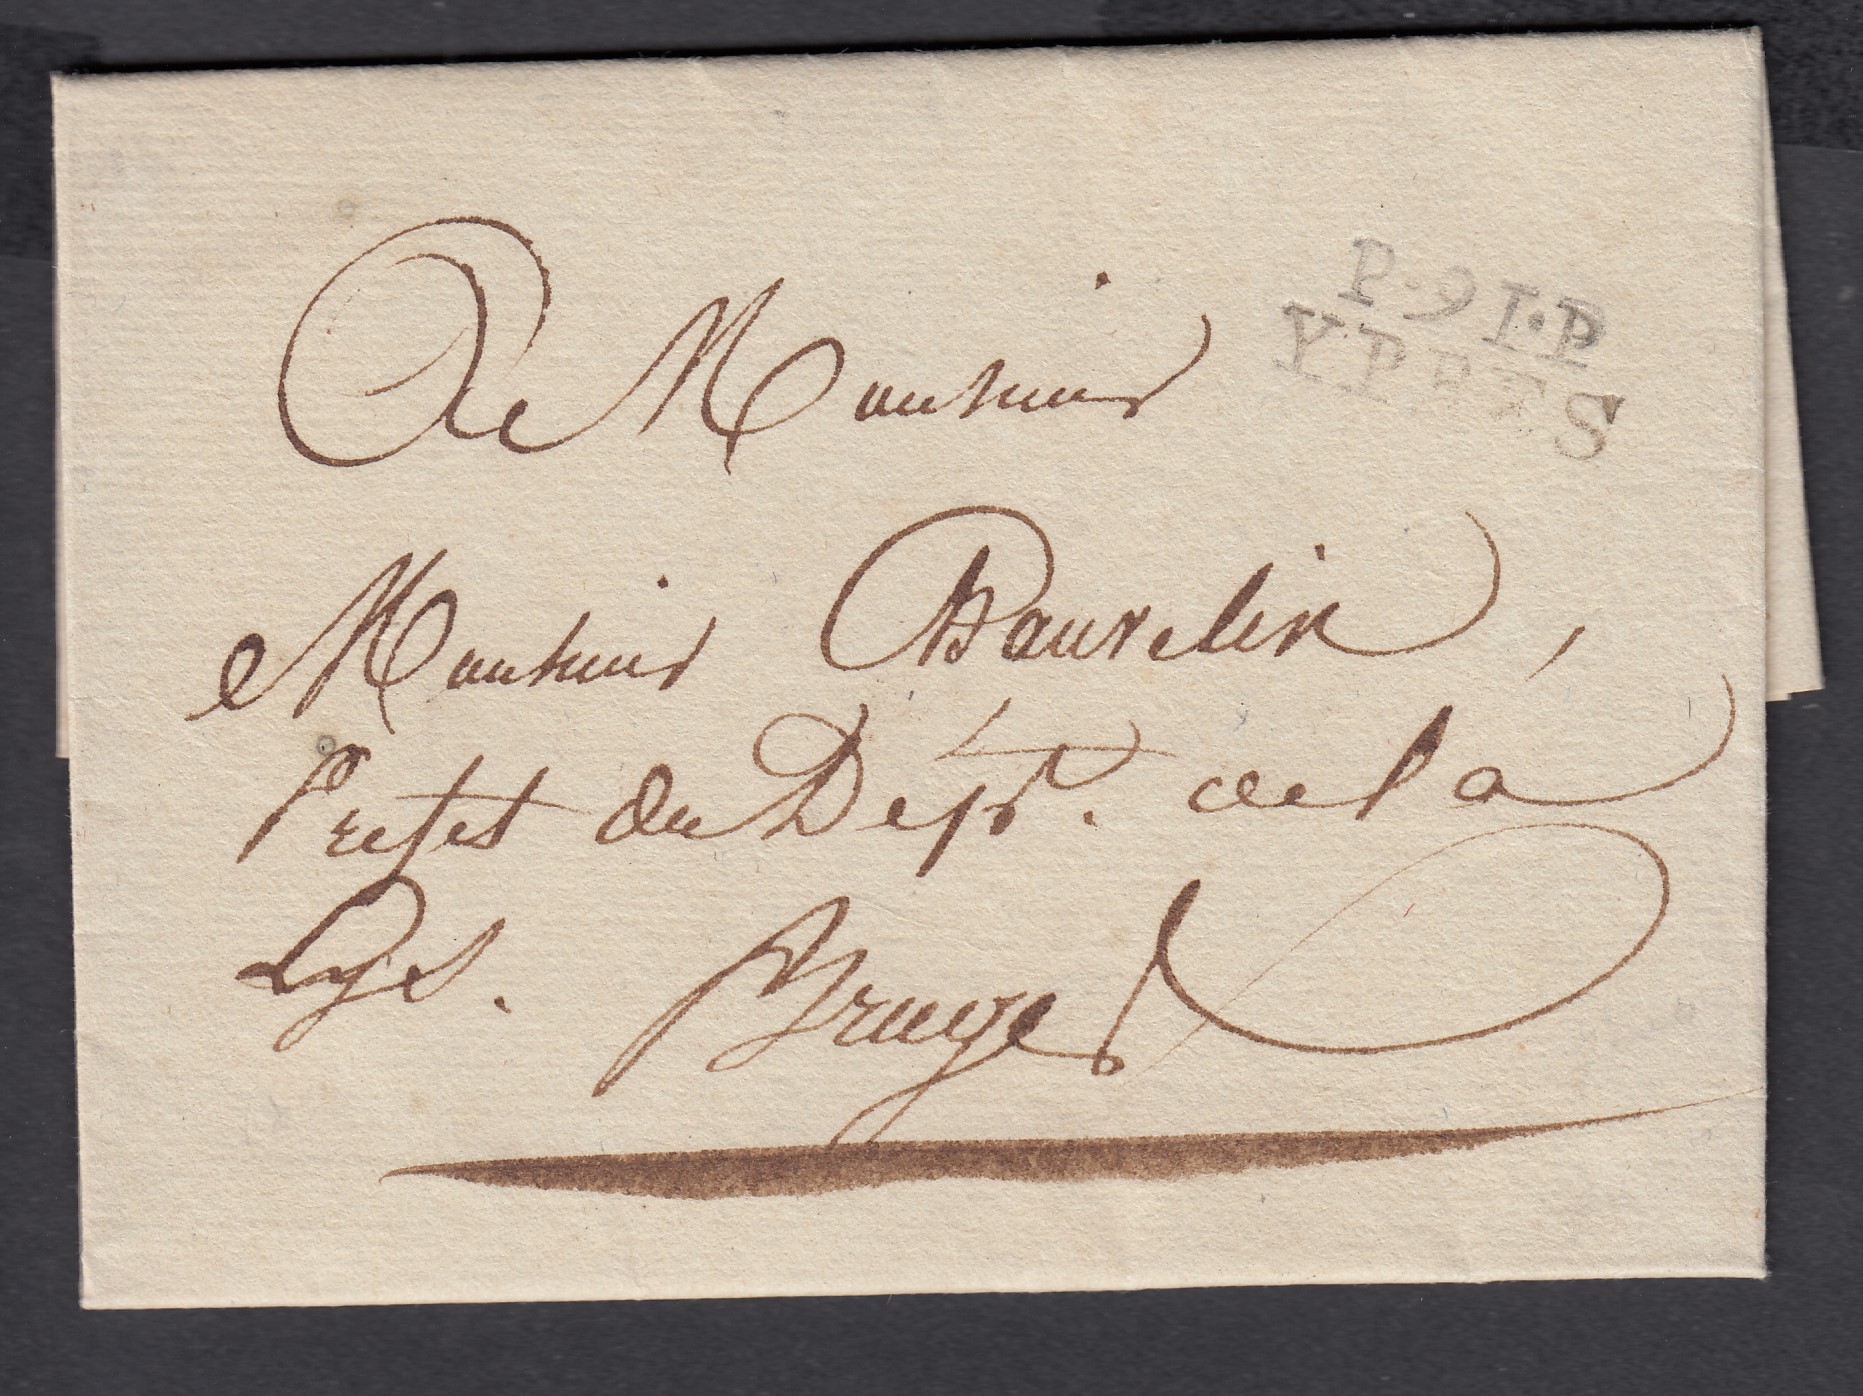 P.91.P
YPRES
A Monsieur
Monsieur Chauvelin,
Prefet du Dépt. de la
Lys. Bruges